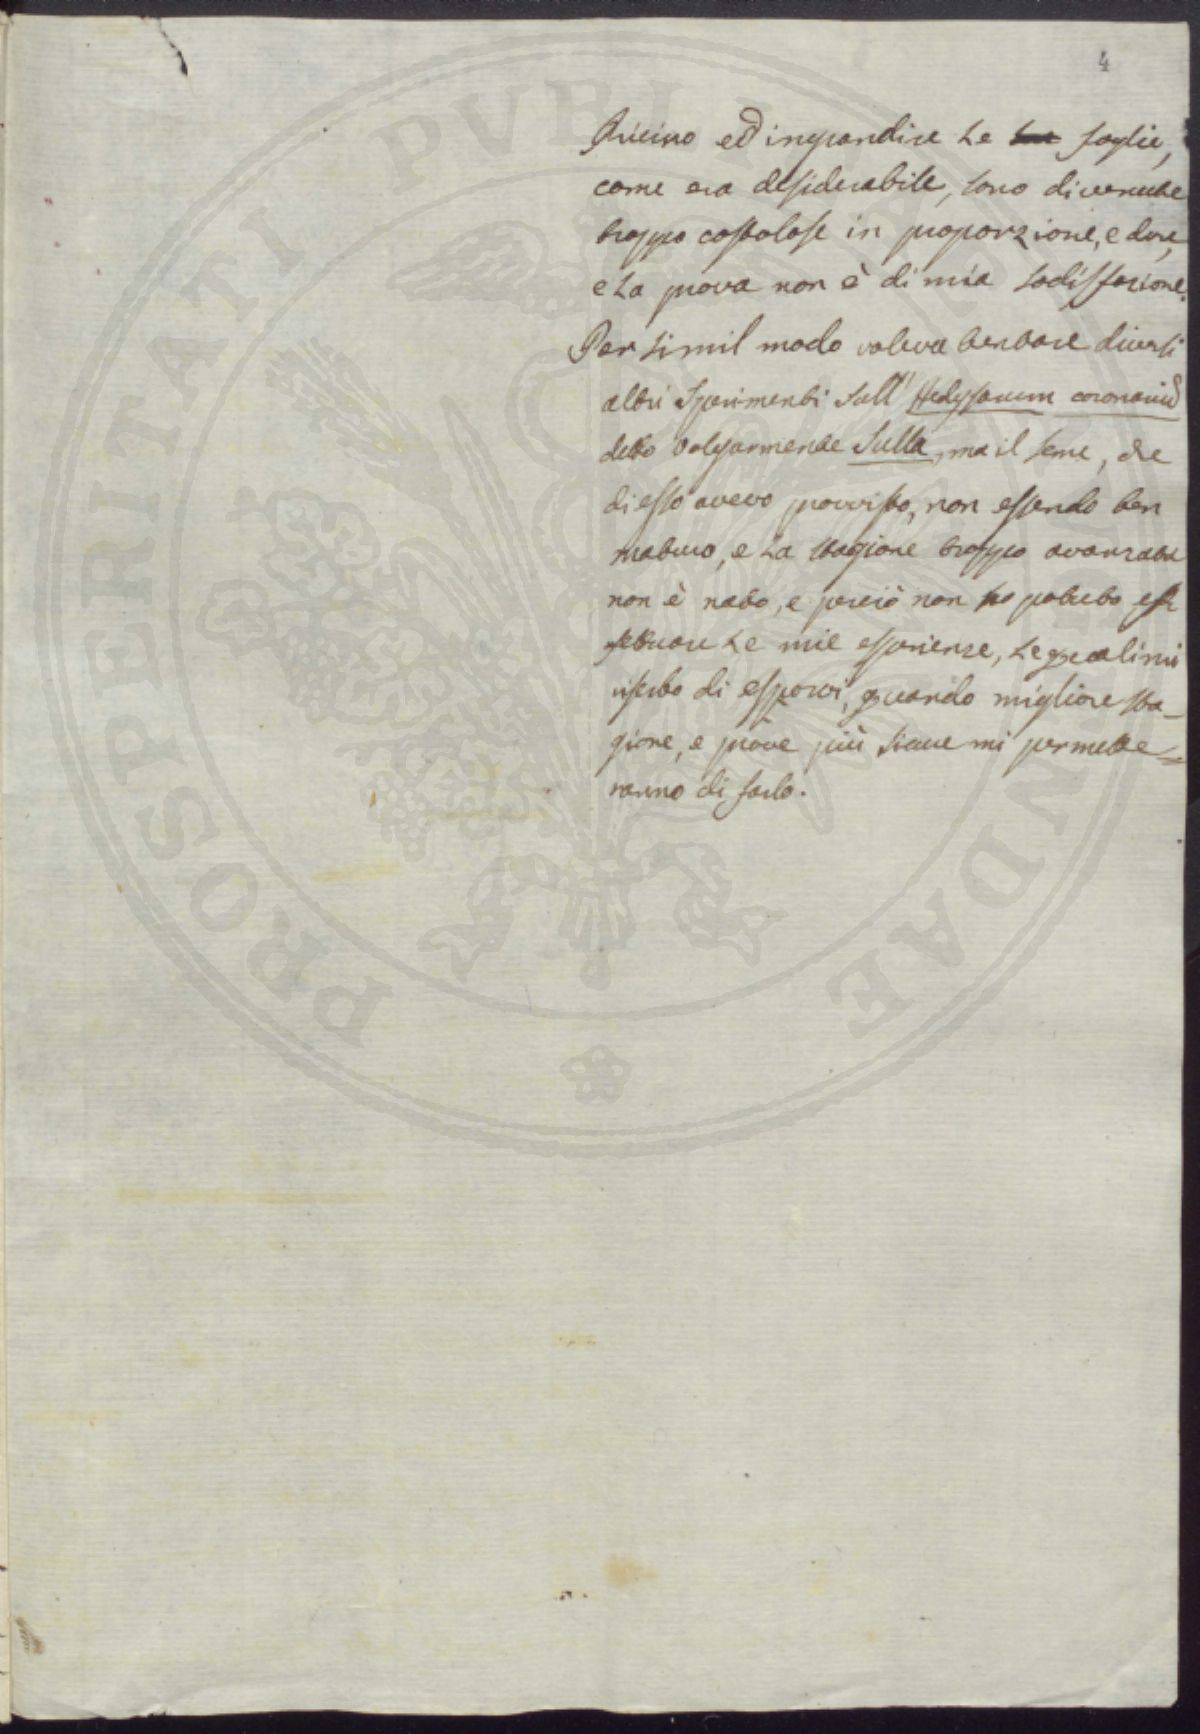 4
Ricino ed ingrandire le foglie,
come era desiderabile, sono divenute
troppo costolose in proporzione, e dure,
e la prova non è di mia sodisfazione.
Per simil modo voleva tentare diversi
altri sperimenti sull' Hedysarum coronariũ
detto volgarmente Sulla, ma il seme, che
di esso avevo provvisto, non essendo ben
maturo, e la stagione troppo avanzata
non è nato, e perciò non ho potuto ef
fettuare le mie esperienze, le quali mi
riserbo di esporvi, quando migliore sta-
gione, e prove più sicure mi permette=
ranno di farlo.
PROSPERITATI PVBLICAE AVGENDAE